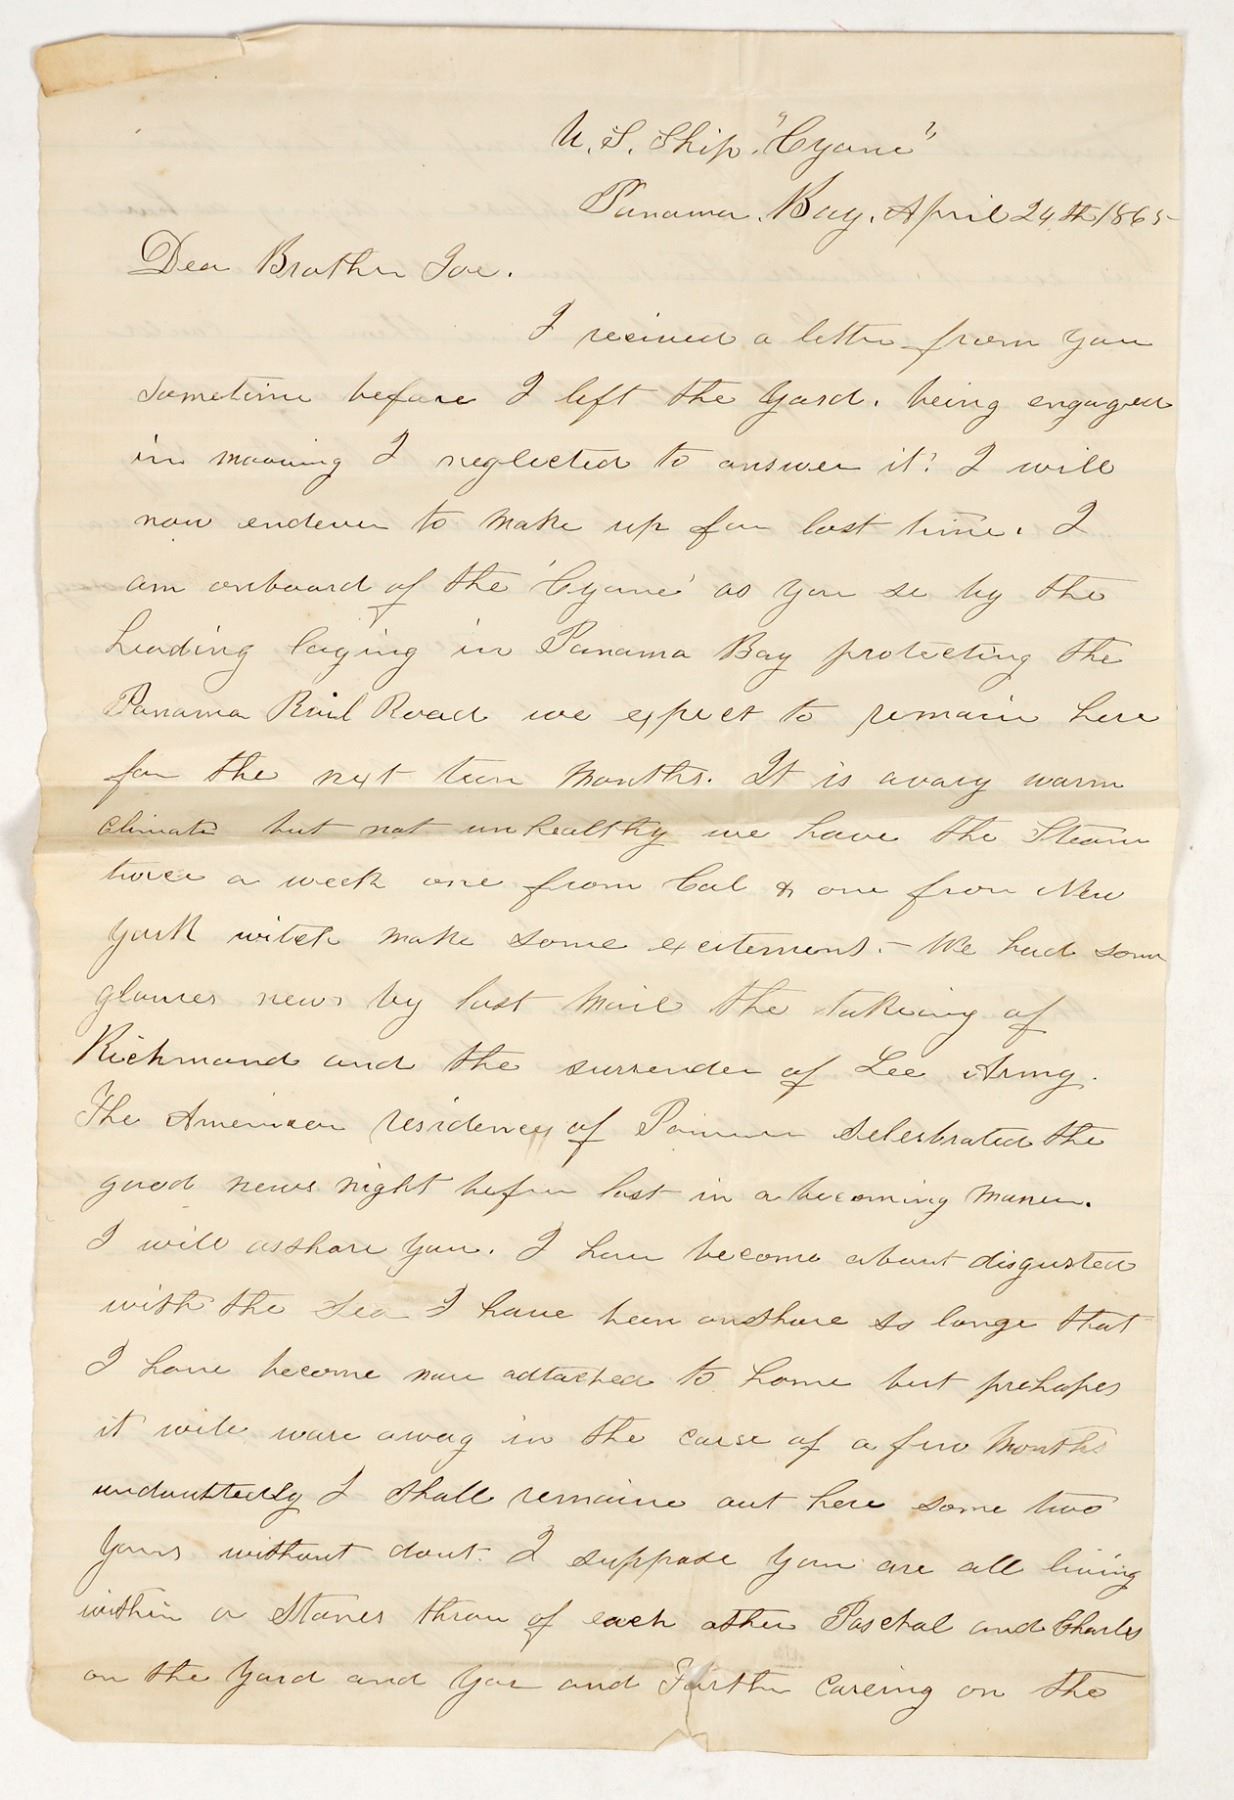 U. S. Ship. "Cyane"
Panama. Bay. April 24th 1865
Dear Brother Joe.
I recived a letter from you
sometime before I left the Yard. being engaged
in mooving I neglected to answer it. I will
now endever to make up for lost time. I
am onboard of the 'Cyane' as you se by the
heading laying in Panama Bay protecting the
Panama Rail Road we expect to remain here
for the next ten months. It is avary warm
climate but not unhealthy we have the Steam
twice a week one from Cal & one from New
York witch make some excitement. - We had some
glories news by last Mail the takeing of
Richmond and the surrender of Lee Army.
The American residencey of Panama Selerbrated the
good news night before last in a becoming maner.
I will asshore you. I have become about disgusted
with the Sea I have been onshore so longe that
I have become more adtached to home but prehapes
it wile ware away in the carse of a few Months
undouttedly I shall remaine out here some two
Years without dout. I suppose you are all living
within a Stones throw of each other Paschal and Charles
on the Yard and you and Farther careing on the